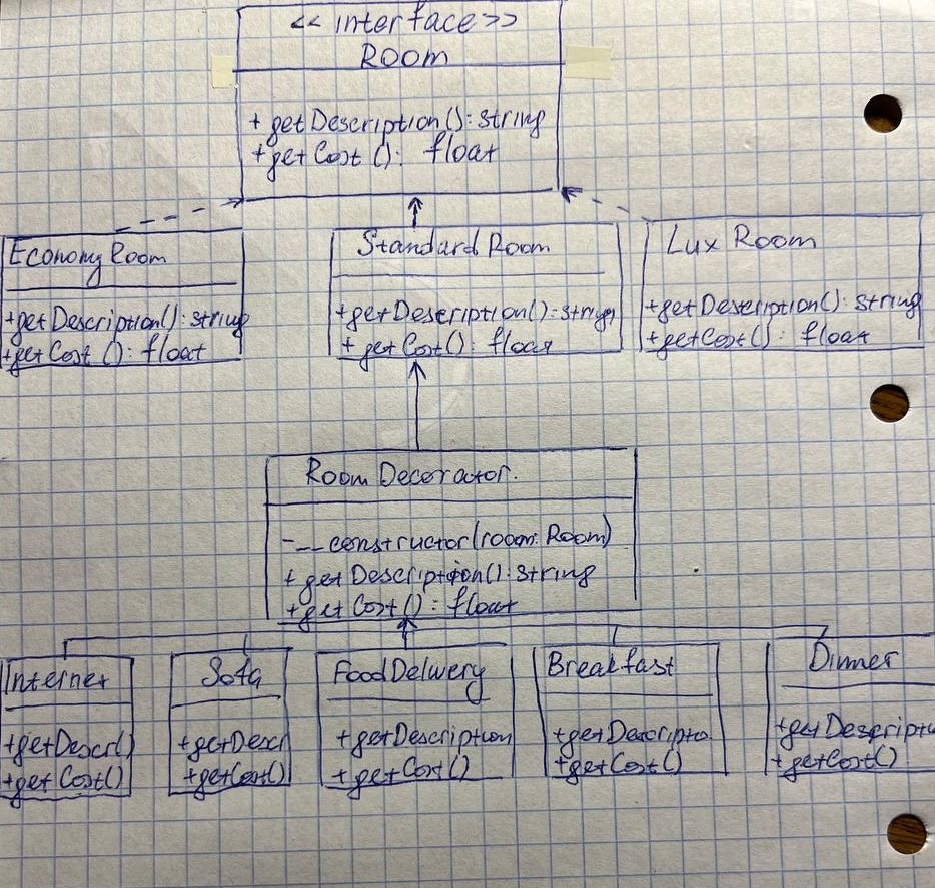 << interface >>
Room
+ getDescription(): string
+ getCost(): float
Economy Room
+getDescription(): string
+getCost(): float
Standard Room
+getDescription(): string
+ getCost(): float
Lux Room
+getDescription(): string
+getCost(): float
Room Decorator.
-__constructor(room: Room)
+ getDescription(): string
+getCost(): float
Internet
+getDescr()
+getCost()
Sofa
+getDescr
+getCost()
FoodDelivery
+getDescription
+getCost()
Breakfast
+getDescriptio.
+getCost()
Dinner
+getDescriptio
+getCost()